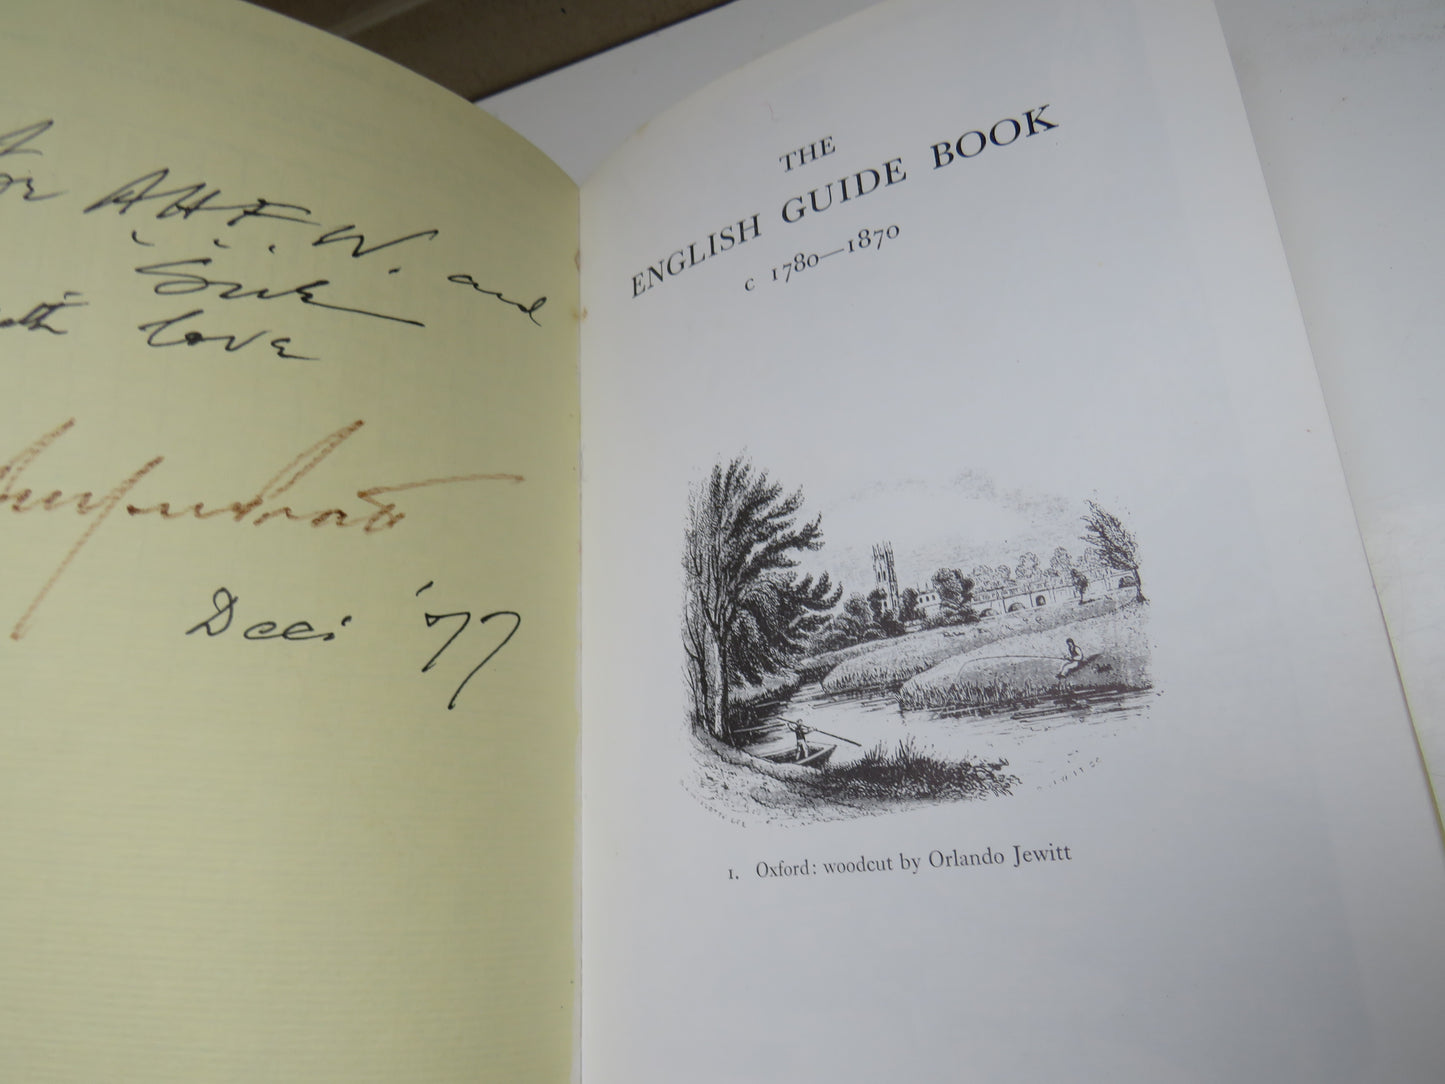 For A.H.F.W. and
with love
Dec: '77
THE
ENGLISH GUIDE BOOK
c 1780—1870
1. Oxford: woodcut by Orlando Jewitt